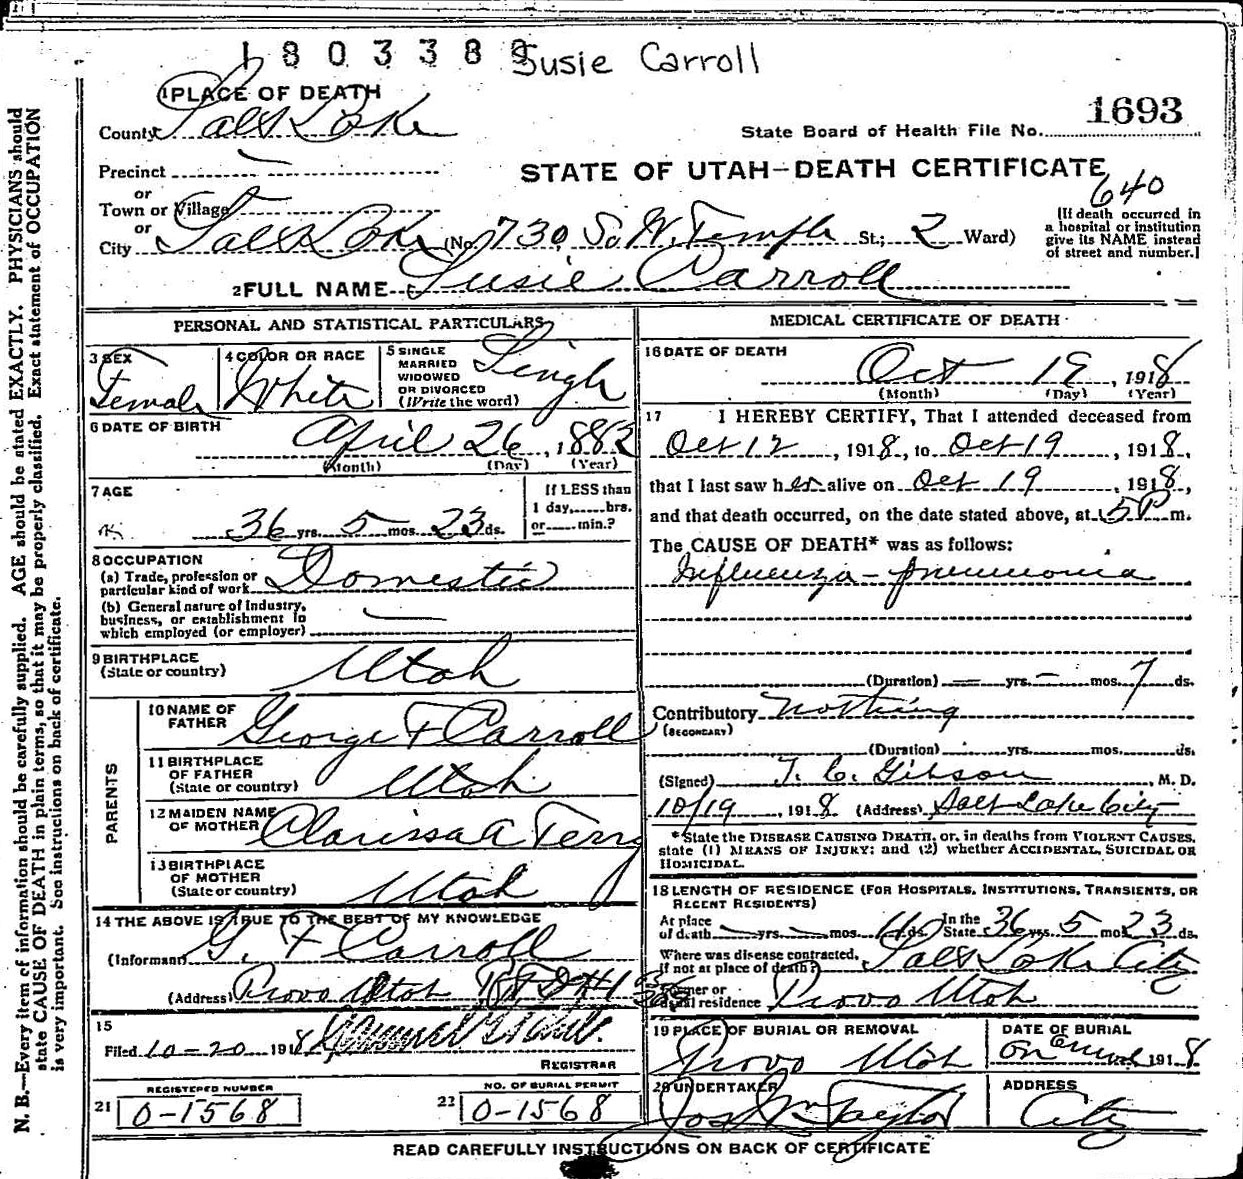 1803388 Susie Carroll
1 PLACE OF DEATH
1693
County Salt Lake
State Board of Health File No.
Precinct
STATE OF UTAH—DEATH CERTIFICATE
640
or
Town or Village
or
City Salt Lake (No. 730 So. W. Temple St.; 2 Ward)
(If death occurred in
a hospital or institution
give its NAME instead
of street and number.)
2 FULL NAME Susie Carroll
PERSONAL AND STATISTICAL PARTICULARS
3 SEX
Female
4 COLOR OR RACE
White
5 SINGLE
MARRIED
WIDOWED
OR DIVORCED
(Write the word)
Single
6 DATE OF BIRTH
April 26, 1882
(Month) (Day) (Year)
7 AGE
36 yrs. 5 mos. 23 ds.
If LESS than
1 day,......hrs.
or......min.?
8 OCCUPATION
(a) Trade, profession or
particular kind of work Domestic
(b) General nature of industry,
business, or establishment in
which employed (or employer)
9 BIRTHPLACE
(State or country) Utah
PARENTS
10 NAME OF
FATHER George F Carroll
11 BIRTHPLACE
OF FATHER
(State or country) Utah
12 MAIDEN NAME
OF MOTHER Clarissa A Terry
13 BIRTHPLACE
OF MOTHER
(State or country) Utah
14 THE ABOVE IS TRUE TO THE BEST OF MY KNOWLEDGE
(Informant) G. F Carroll
(Address) Provo Utah
15
Filed 10-20 1918
REGISTRAR
REGISTERED NUMBER
21 0-1568
NO. OF BURIAL PERMIT
22 0-1568
MEDICAL CERTIFICATE OF DEATH
16 DATE OF DEATH
Oct 19, 1918
(Month) (Day) (Year)
17 I HEREBY CERTIFY, That I attended deceased from
Oct 12, 1918, to Oct 19, 1918,
that I last saw her alive on Oct 19, 1918,
and that death occurred, on the date stated above, at 5 P m.
The CAUSE OF DEATH* was as follows:
Influenza - pneumonia
(Duration) — yrs. — mos. 7 ds.
Contributory Nothing
(SECONDARY)
(Duration) yrs. mos. ds.
(Signed) T. C. Gibson M. D.
10/19, 1918 (Address) Salt Lake City
*State the DISEASE CAUSING DEATH, or, in deaths from VIOLENT CAUSES,
state (1) MEANS OF INJURY; and (2) whether ACCIDENTAL, SUICIDAL OR
HOMICIDAL.
18 LENGTH OF RESIDENCE (FOR HOSPITALS, INSTITUTIONS, TRANSIENTS, OR
RECENT RESIDENTS)
At place
of death — yrs. — mos. ds. In the State 36 yrs. 5 mos. 23 ds.
Where was disease contracted,
if not at place of death? Salt Lake City
Former or
usual residence Provo Utah
19 PLACE OF BURIAL OR REMOVAL
Provo Utah
DATE OF BURIAL
On arrival 1918
20 UNDERTAKER
Jos Wm Taylor
ADDRESS
City
READ CAREFULLY INSTRUCTIONS ON BACK OF CERTIFICATE
N. B.—Every item of information should be carefully supplied. AGE should be stated EXACTLY. PHYSICIANS should
state CAUSE OF DEATH in plain terms, so that it may be properly classified. Exact statement of OCCUPATION
is very important. See instructions on back of certificate.